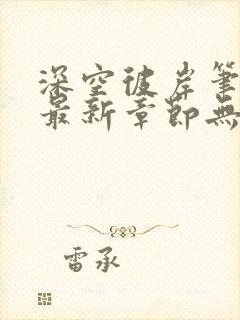 深空彼岸筆
最新章節無
雷承